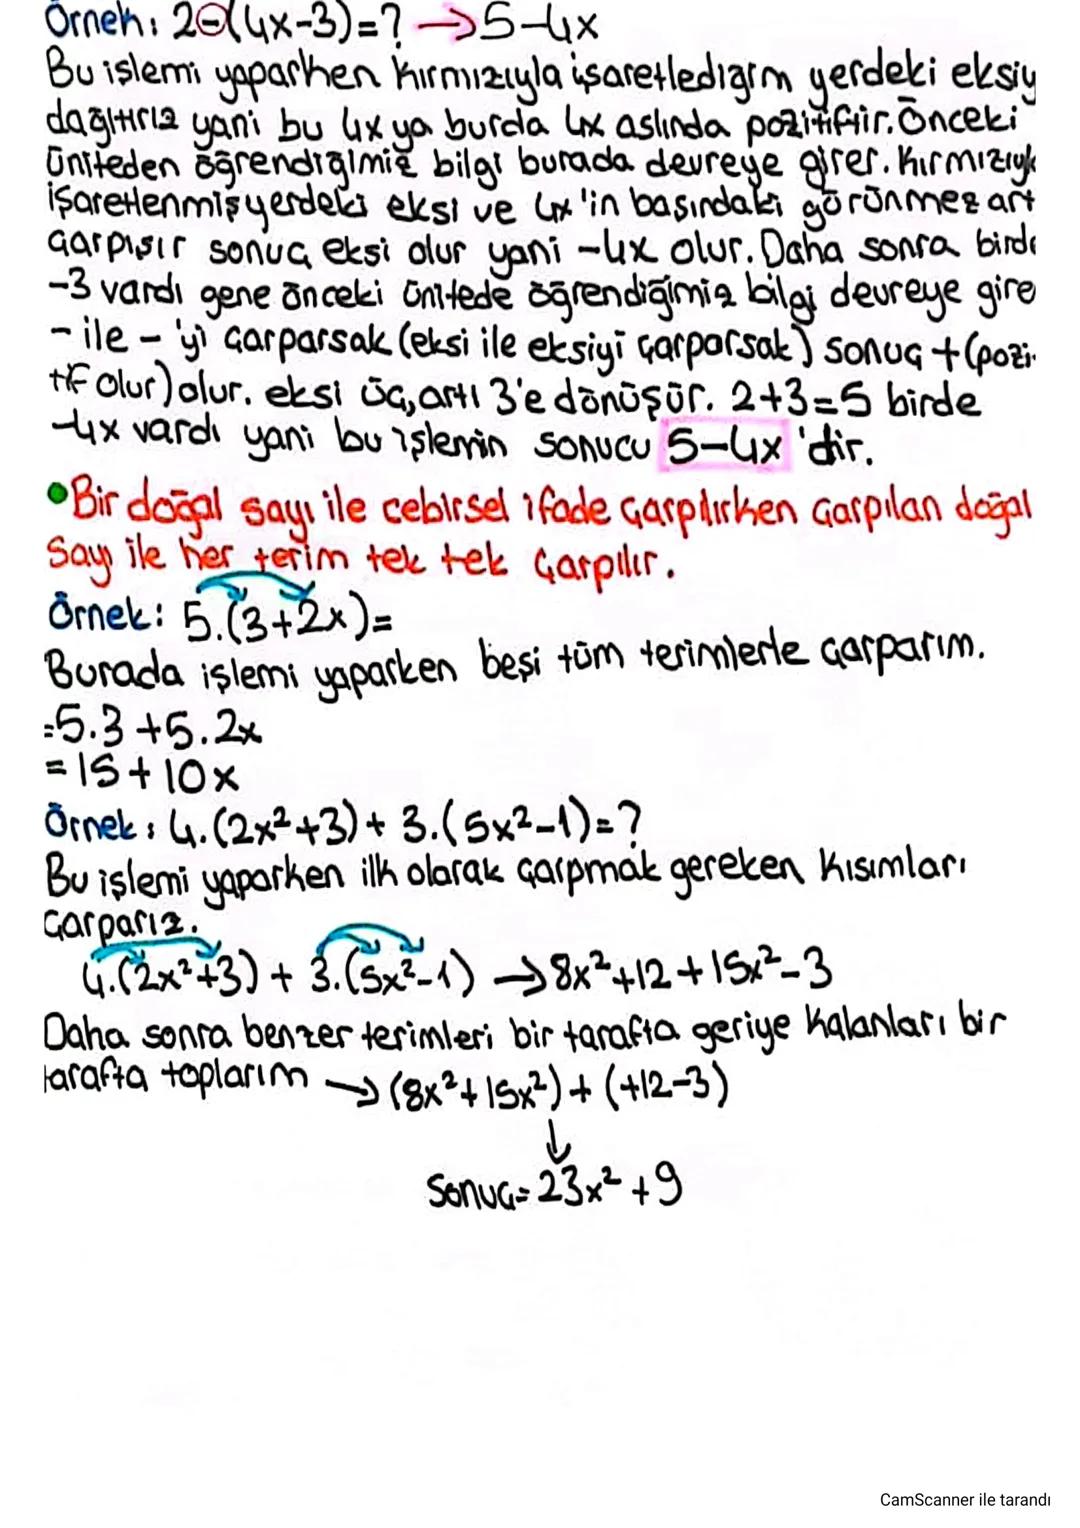 Örnek: 2-(4x-3)=? →5-4x
Bu işlemi yaparken kırmızıyla işaretlediğim yerdeki eksiy
dağıtırız yani bu 4x ya burda 4x aslında pozitiftir. Önceki
üniteden öğrendiğimiz bilgi burada devreye girer. Kırmızıyl
işaretlenmiş yerdeki eksi ve 4x'in başındaki görünmez art
çarpışır sonuç eksi olur yani -4x olur. Daha sonra birde
-3 vardı gene önceki ünitede öğrendiğimiz bilgi devreye gire
- ile - 'yi çarparsak (eksi ile eksiyi çarparsak) sonuç + (pozi-
tif olur) olur. eksi üç, artı 3'e dönüşür. 2+3=5 birde
-4x vardı yani bu işlemin sonucu 5-4x 'dir.
•Bir doğal sayı ile cebirsel ifade çarpılırken çarpılan doğal
sayı ile her terim tek tek çarpılır.
Örnek: 5.(3+2x)=
Burada işlemi yaparken beşi tüm terimlerle çarparım.
=5.3+5.2x
=15+10x
Örnek: 4.(2x²+3)+3.(5x²-1)=?
Bu işlemi yaparken ilk olarak çarpmak gereken kısımları
çarparız.
4.(2x²+3)+3.(5x²-1) →8x²+12+15x²-3
Daha sonra benzer terimleri bir tarafta geriye kalanları bir
tarafta toplarım → (8x²+15x²)+(+12-3)
↓
Sonuç=23x²+9
CamScanner ile tarandı